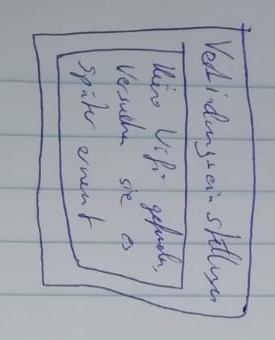 Verbindungseinstellungen
Kein Wifi gefunden,
Versuchen sie es
später erneut